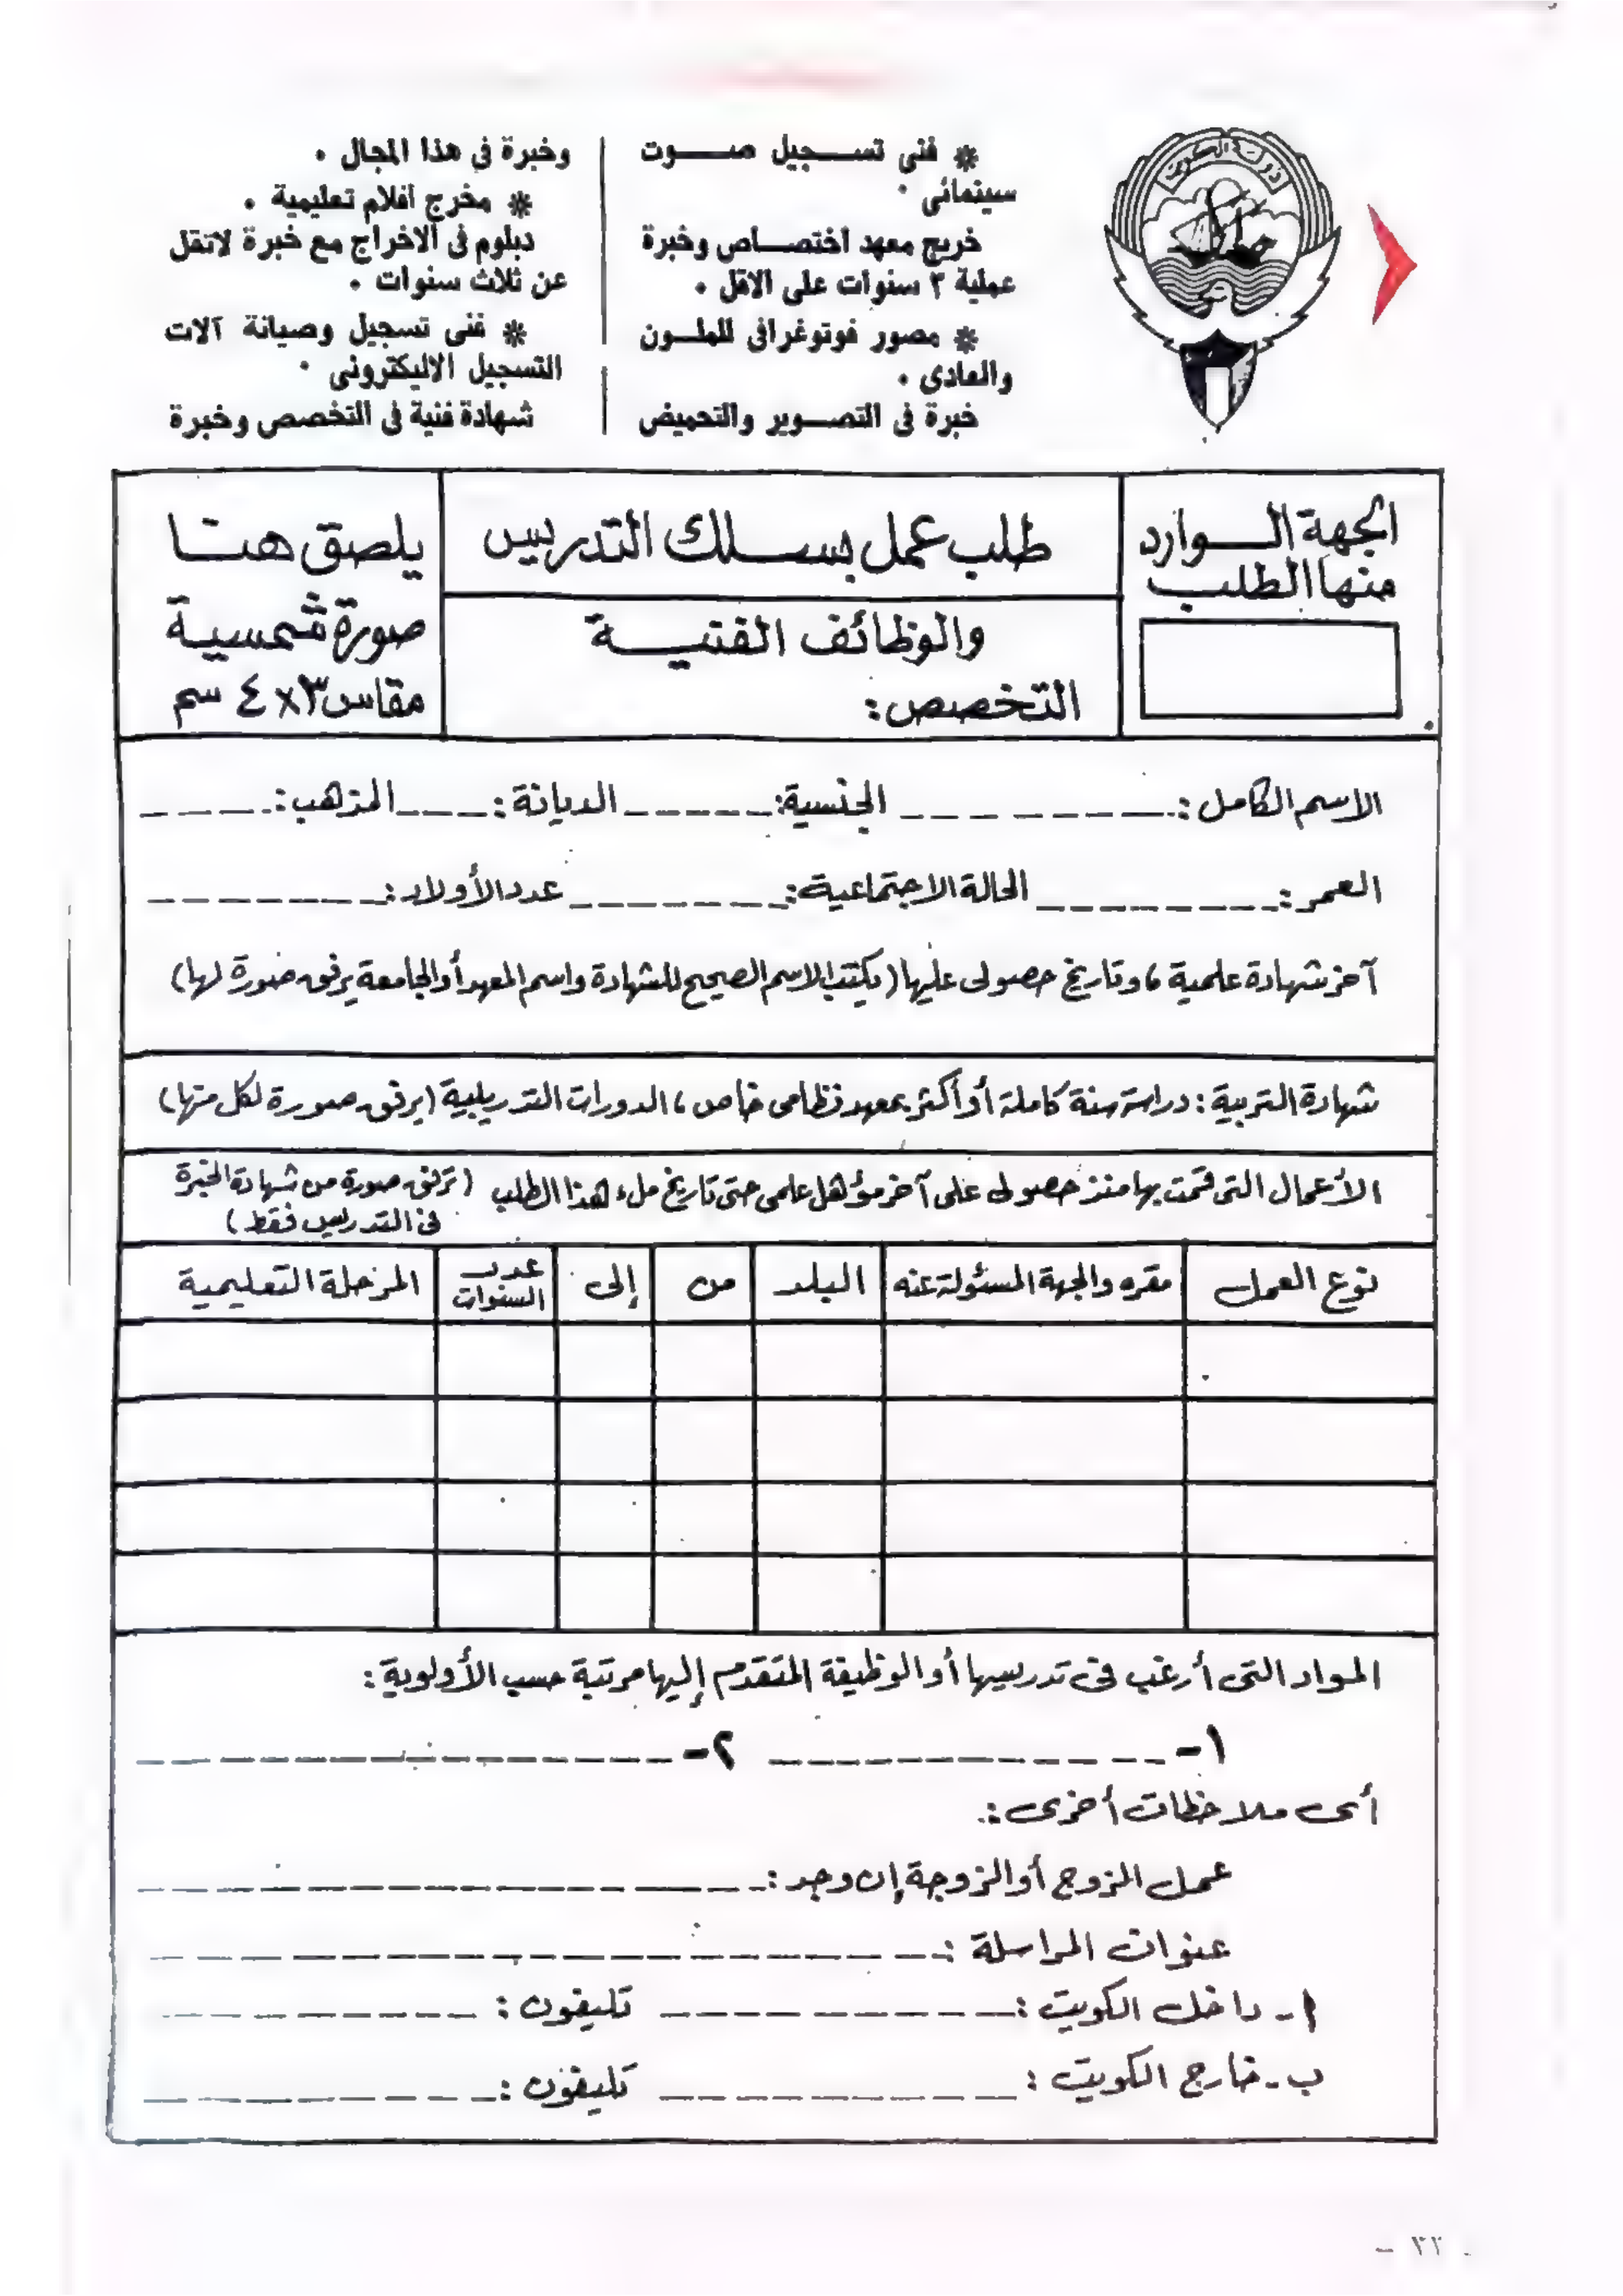 دولة الكويت
* فنى تسجيل صوت
سينمائى .
خريج معهد اختصاص وخبرة
عملية ٣ سنوات على الاقل .
* مصور فوتوغرافى للملون
والعادى .
خبرة فى التصوير والتحميض
وخبرة فى هذا المجال .
* مخرج افلام تعليمية .
دبلوم فى الاخراج مع خبرة لاتقل
عن ثلاث سنوات .
* فنى تسجيل وصيانة آلات
التسجيل الاليكترونى .
شهادة فنية فى التخصص وخبرة
الجهة الوارد
منها الطلب
طلب عمل بسلك التدريس
والوظائف الفنية
التخصص:
يلصق هنا
صورة شمسية
مقاس ٣×٤ سم
الاسم الكامل: الجنسية: الديانة: المذهب:
العمر: الحالة الاجتماعية: عدد الأولاد:
آخر شهادة علمية، وتاريخ حصولى عليها (يكتب الاسم الصحيح للشهادة واسم المعهد أو الجامعة يرفق صورة لها)
شهادة التربية: دراسة سنة كاملة أو أكثر بمعهد نظامى خاص، الدورات التدريبية (يرفق صورة لكل منها)
الأعمال التى قمت بها منذ حصولى على آخر مؤهل علمى حتى تاريخ ملء هذا الطلب (ترفق صورة من شهادة الخبرة
فى التدريس فقط)
نوع العمل مقره والجهة المسئولة عنه البلد من إلى عدد السنوات المرحلة التعليمية
المواد التى أرغب فى تدريسها أو الوظيفة المتقدم إليها مرتبة حسب الأولوية:
١- ٢-
أى ملاحظات أخرى:
عمل الزوج أو الزوجة إن وجد:
عنوان المراسلة:
ا- داخل الكويت: تليفون:
ب- خارج الكويت: تليفون:
- ٣٣ -